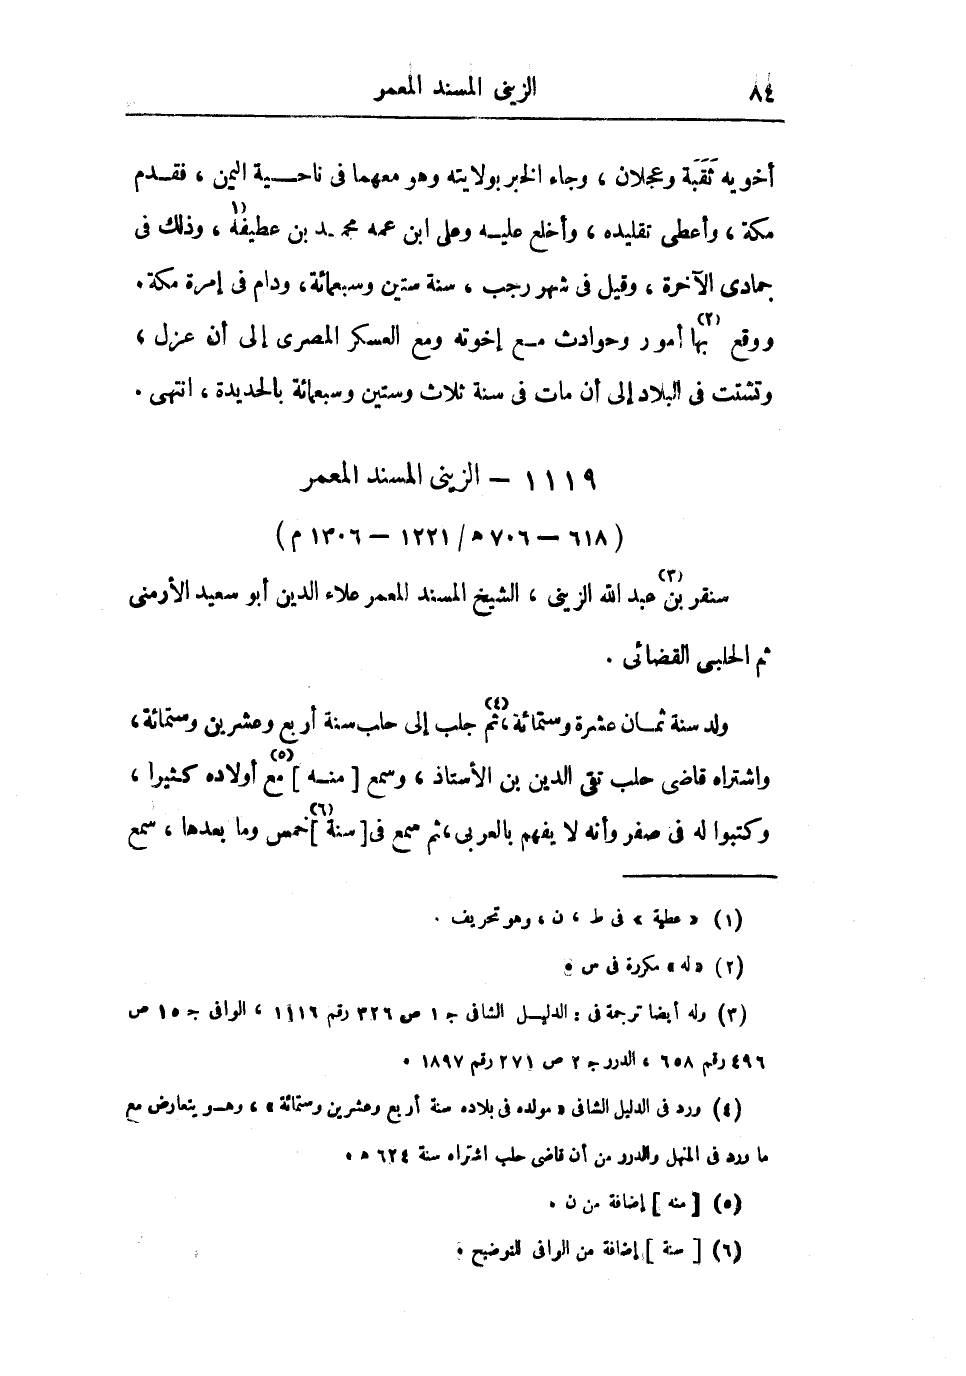 ٨٤ الزينى المسند المعمر
أخويه ثَقَبَة وعجلان ، وجاء الخبر بولايته وهو معهما فى ناحية اليمن ، فقدم
مكة ، وأعطى تقليده ، وأخلع عليه وعلى ابن عمه محمد بن عطيفة(١) ، وذلك فى
جمادى الآخرة ، وقيل فى شهر رجب ، سنة ستين وسبعمائة ، ودام فى إمرة مكة .
ووقع بها(٢) أمور وحوادث مع إخوته ومع العسكر المصرى إلى أن عزل ،
وتشتت فى البلاد إلى أن مات فى سنة ثلاث وستين وسبعمائة بالحديدة ، انتهى .
١١١٩ – الزينى المسند المعمر
(٦١٨ – ٧٠٦ ه / ١٢٢١ – ١٣٠٦ م)
سنقر بن(٣) عبد الله الزينى ، الشيخ المسند المعمر علاء الدين أبو سعيد الأرمنى
ثم الحلبى القضائى .
ولد سنة ثمان عشرة وستمائة ،(٤) ثم جلب إلى حلب سنة أربع وعشرين وستمائة ،
واشتراه قاضى حلب تقى الدين بن الأستاذ ، وسمع [ منه ](٥) مع أولاده كثيرا ،
وكتبوا له فى صفر وأنه لا يفهم بالعربى ، ثم سمع فى [ سنة ](٦) خمس وما بعدها ، سمع
(١) « عطية » فى ط ، ن ، وهو تحريف .
(٢) « له » مكررة فى س .
(٣) وله أيضا ترجمة فى : الدليل الشافى ج ١ ص ٣٢٦ رقم ١١١٦ ، الوافى ج ١٥ ص
٤٩٦ رقم ٦٥٨ ، الدرر ج ٢ ص ٢٧١ رقم ١٨٩٧ .
(٤) ورد فى الدليل الشافى « مولده فى بلاده سنة أربع وعشرين وستمائة » ، وهو يتعارض مع
ما ورد فى المنهل والدرر من أن قاضى حلب اشتراه سنة ٦٢٤ ه .
(٥) [ منه ] إضافة من ن .
(٦) [ سنة ] إضافة من الوافى للتوضيح .